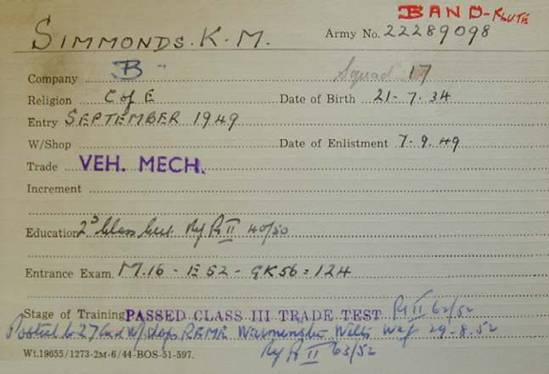 BAND - FLUTE
SIMMONDS. K. M. Army No. 22289098
Company B Squad 17
Religion C of E Date of Birth 21-7-34
Entry SEPTEMBER 1949
W/Shop Date of Enlistment 7.9.49
Trade VEH. MECH.
Increment
Education 2nd Class Cert. Pt II 40/50
Entrance Exam. M.16 - E52 - GK56 = 124
Stage of Training PASSED CLASS III TRADE TEST Pt II 62/52
Posted to 27 W/shops REME Warminster Wilts wef 29-8.52
Wt.19655/1273-2M-6/44-BOS-51-597. Pt II 63/52